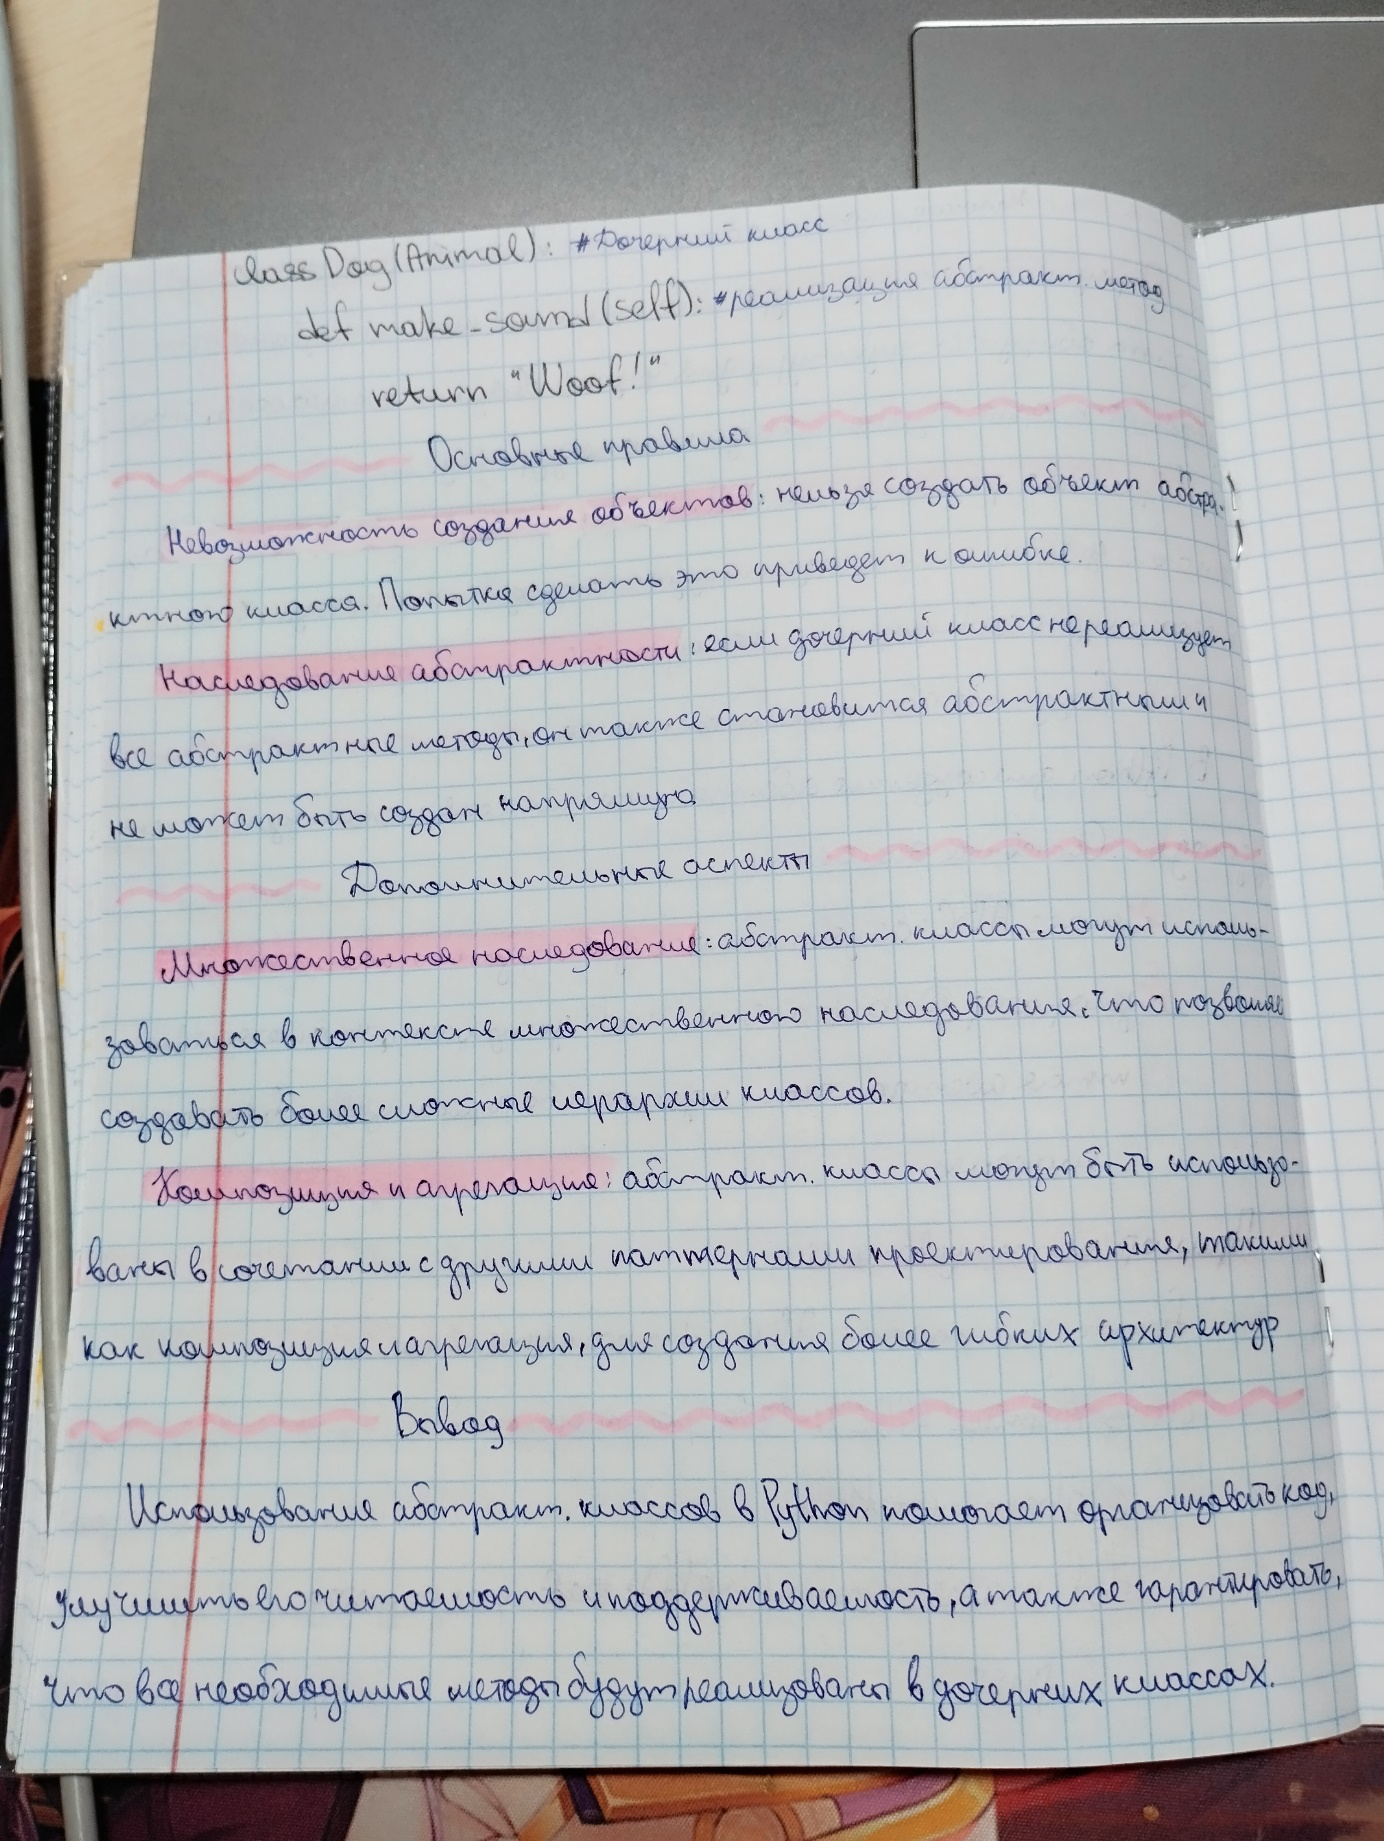 class Dog(Animal): #Дочерний класс
def make_sound(self): #реализация абстракт. метод
return "Woof!"
Основные правила
Невозможность создания объектов: нельзя создать объект абстра-
ктного класса. Попытка сделать это приведет к ошибке.
Наследование абстрактности: если дочерний класс не реализует
все абстрактные методы, он также становится абстрактным и
не может быть создан напрямую
Дополнительные аспекты
Множественное наследование: абстракт. классы могут исполь-
зоваться в контексте множественного наследования, что позволяе
создавать более сложные иерархии классов.
Композиция и агрегация: абстракт. классы могут быть использо-
ваны в сочетании с другими паттернами проектирования, такими
как композиция и агрегация, для создания более гибких архитектур
Вывод
Использование абстракт. классов в Python помогает организовать код,
улучшить его читаемость и поддерживаемость, а также гарантировать,
что все необходимые методы будут реализованы в дочерних классах.